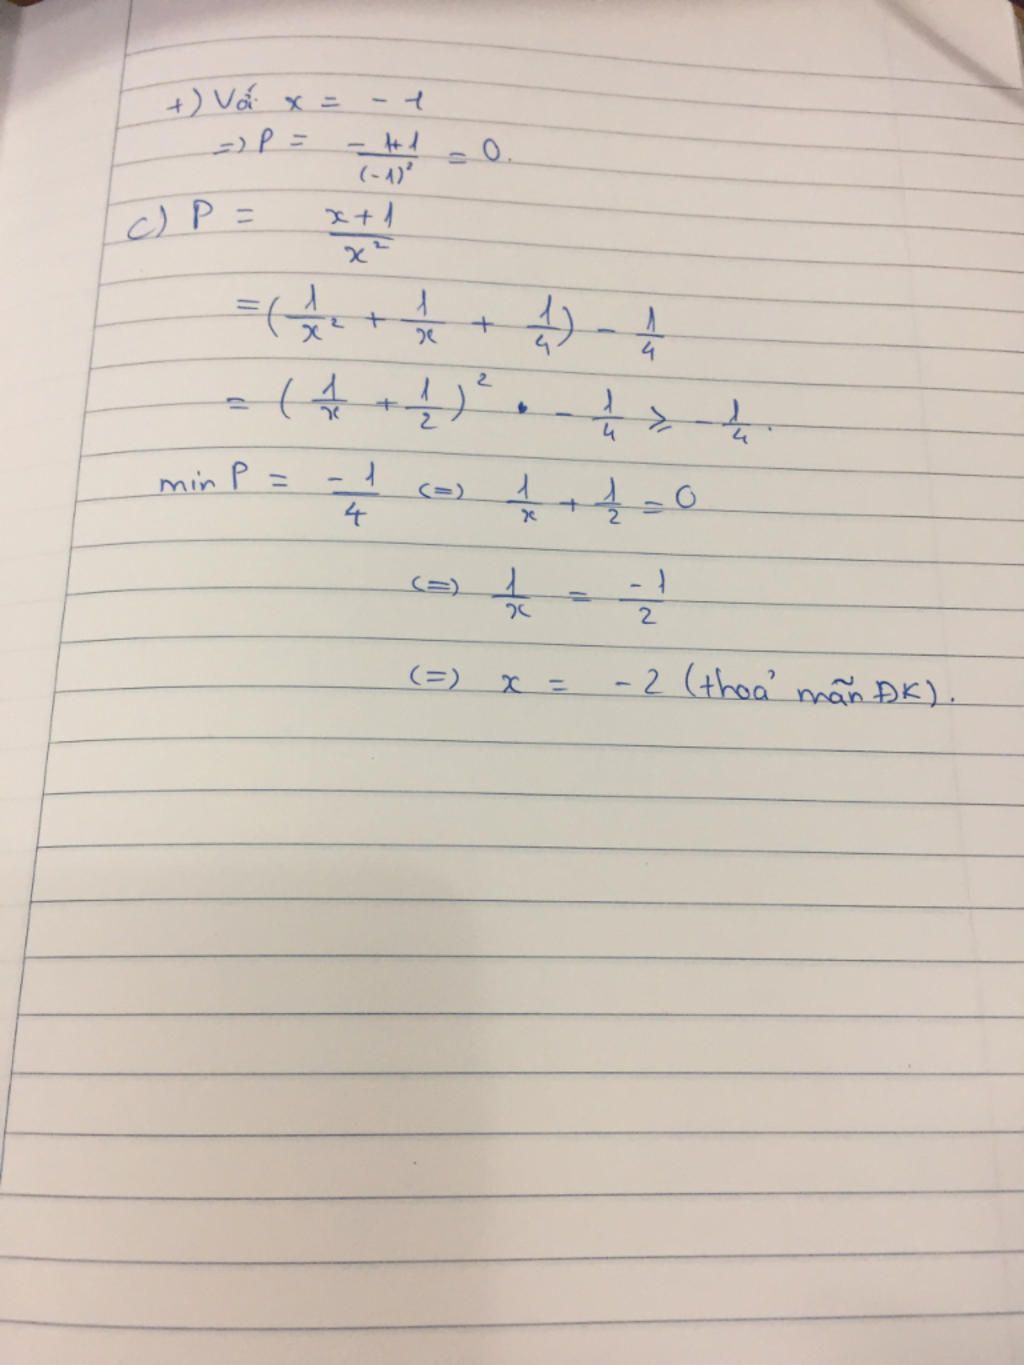 +) Với x = -1
=> P = \frac{-1+1}{(-1)^2} = 0.
c) P = \frac{x+1}{x^2}
= (\frac{1}{x^2} + \frac{1}{x} + \frac{1}{4}) - \frac{1}{4}
= (\frac{1}{x} + \frac{1}{2})^2 - \frac{1}{4} ≥ -\frac{1}{4}.
min P = \frac{-1}{4} (=) \frac{1}{x} + \frac{1}{2} = 0
(=) \frac{1}{x} = \frac{-1}{2}
(=) x = -2 (thoả mãn ĐK).